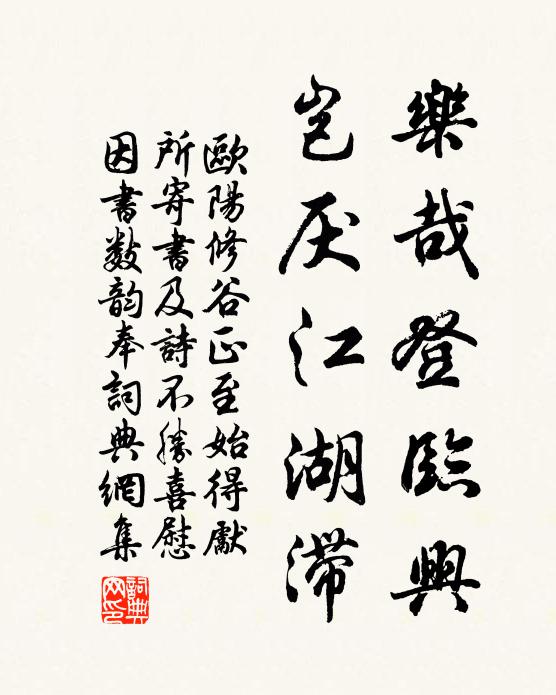 樂哉登臨興
豈厌江湖滞
歐陽修谷正至始得獻
所寄書及詩不勝喜慰
因書数韵奉詞典網集
詞典
网印